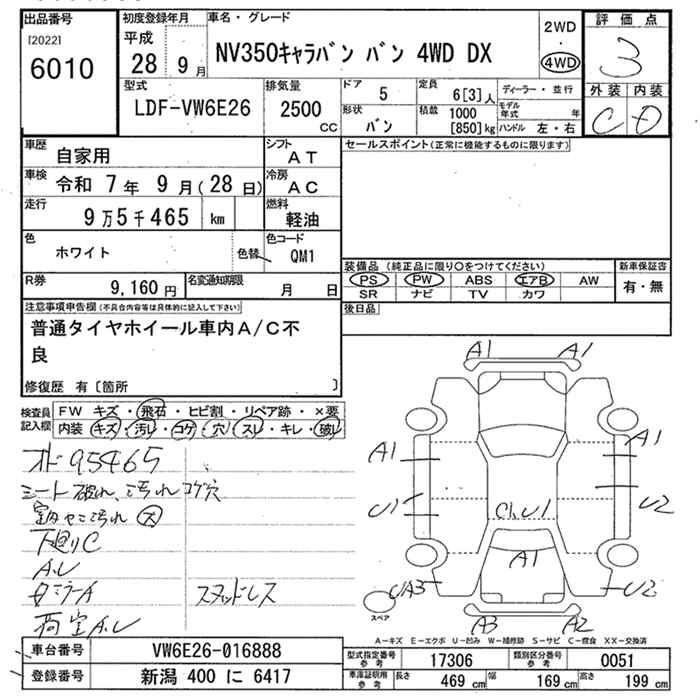 出品番号
[2022]
6010
初度登録年月
平成
28 9月
車名・グレード
NV350キャラバン バン 4WD DX
2WD
・
4WD
評価点
3
外装 内装
C D
型式
LDF-VW6E26
排気量
2500
cc
ドア
5
形状
バン
定員
6[3]人
積載
1000
[850]kg
ディーラー・並行
モデル年式 年
ハンドル 左・右
車歴
自家用
シフト
AT
車検
令和 7年 9月(28日)
冷房
AC
走行
9万5千465 km
燃料
軽油
色
ホワイト
色替
色コード
QM1
R券
9,160円
名変通知期限
月 日
セールスポイント(正常に機能するものに限ります)
装備品 (純正品に限り○をつけてください)
PS PW ABS エアB AW
SR ナビ TV カワ
新車保証書
有・無
後日品
注意事項申告欄(不具合内容等は具体的に記入して下さい)
普通タイヤホイール車内A/C不
良
修復歴 有〔箇所 〕
検査員
記入欄
FW キズ・飛石・ヒビ割・リペア跡・×要
内装 キズ・汚レ・コゲ・穴・スレ・キレ・破レ
オド95465
シート破れ、汚れ コゲ穴
室内ヤニ汚れ 大
下廻りC
A,U
スタッドレス
荷室A,U
A1 A1
A1 A1
U1 U2
C1,U1
A1
UA3 U2
A3 A2
スペア
A−キズ E−エクボ U−凹み W−補修跡 S−サビ C−腐食 XX−交換済
車台番号
VW6E26-016888
登録番号
新潟 400 に 6417
型式指定番号
参考
17306
類別区分番号
参考
0051
車庫証明用
参考
長さ
469 cm
幅
169 cm
高さ
199 cm